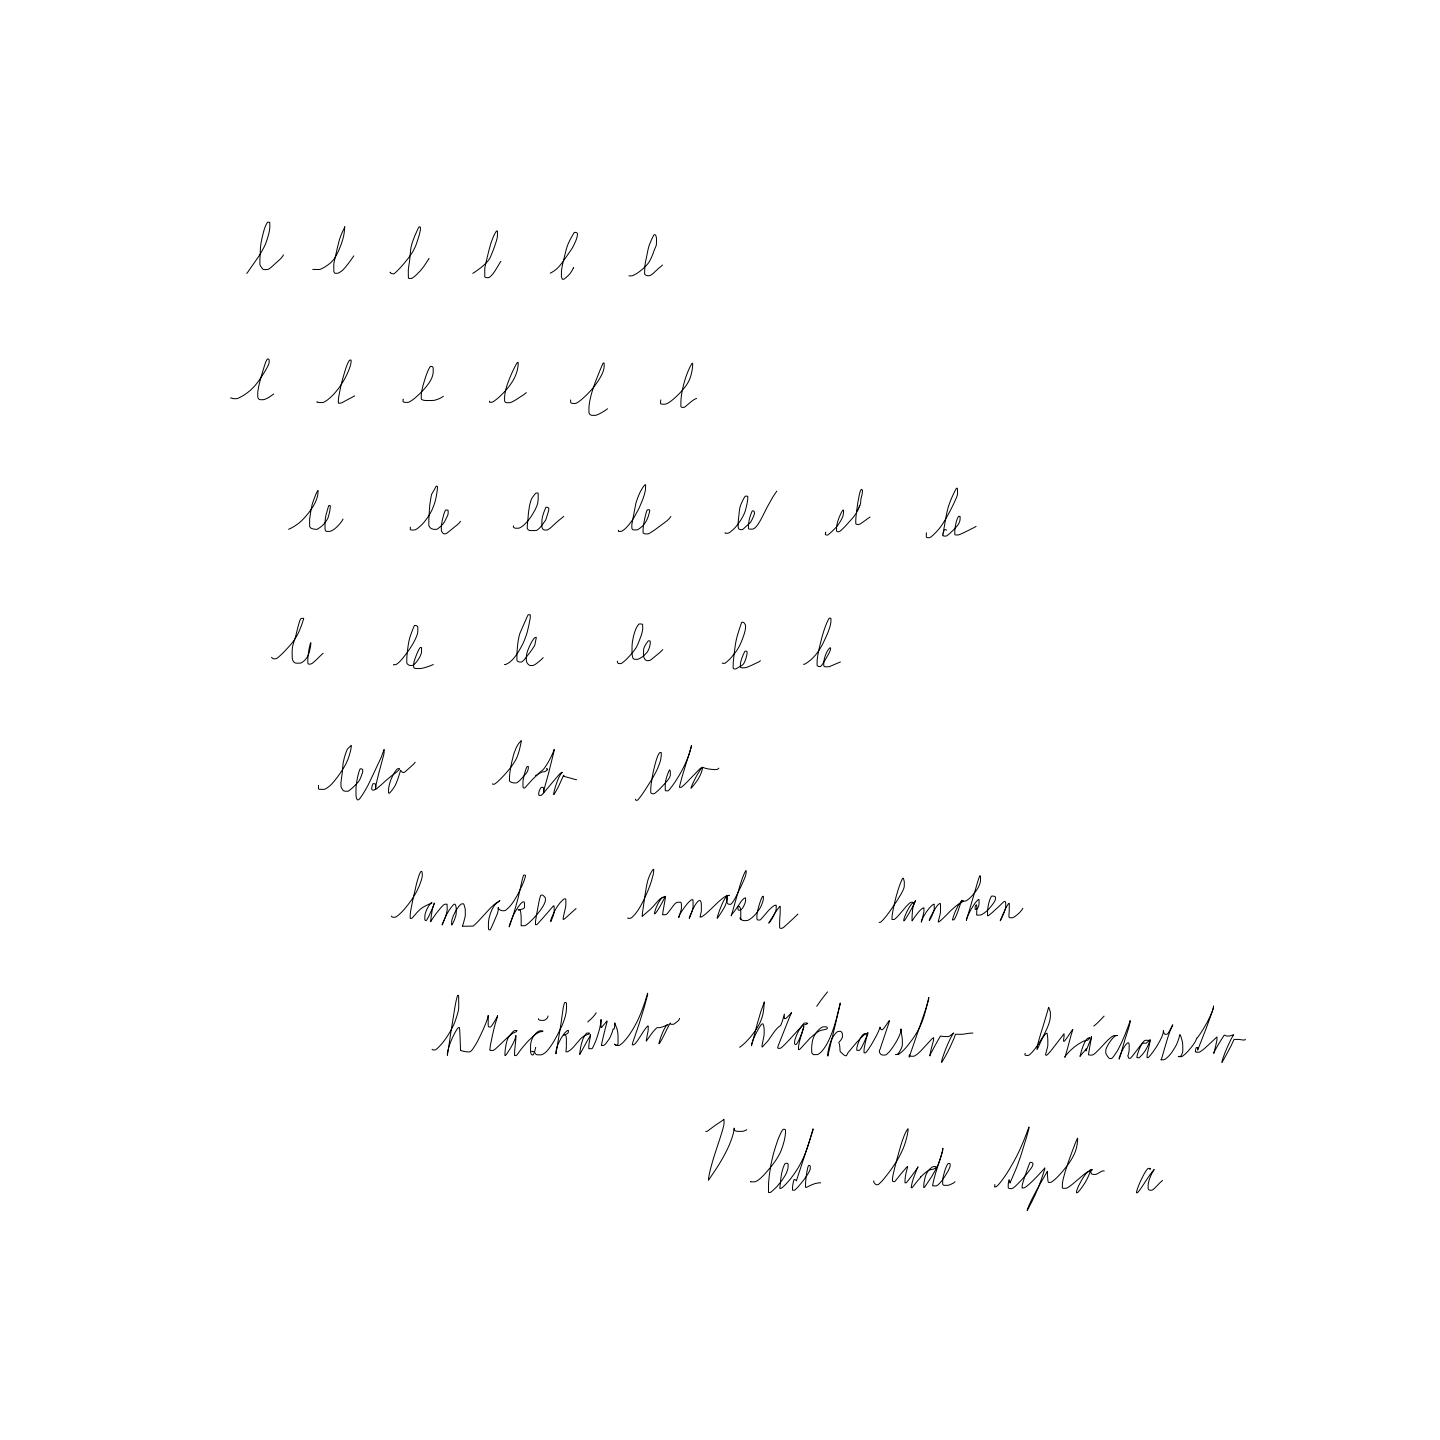 l l l l l l
l l l l l l
le le le le le el le
le le le le le le
leto leto leto
lamoken lamoken lamoken
hračkárstvo hráckarstvo hrácharstvo
V lete lude teplo a